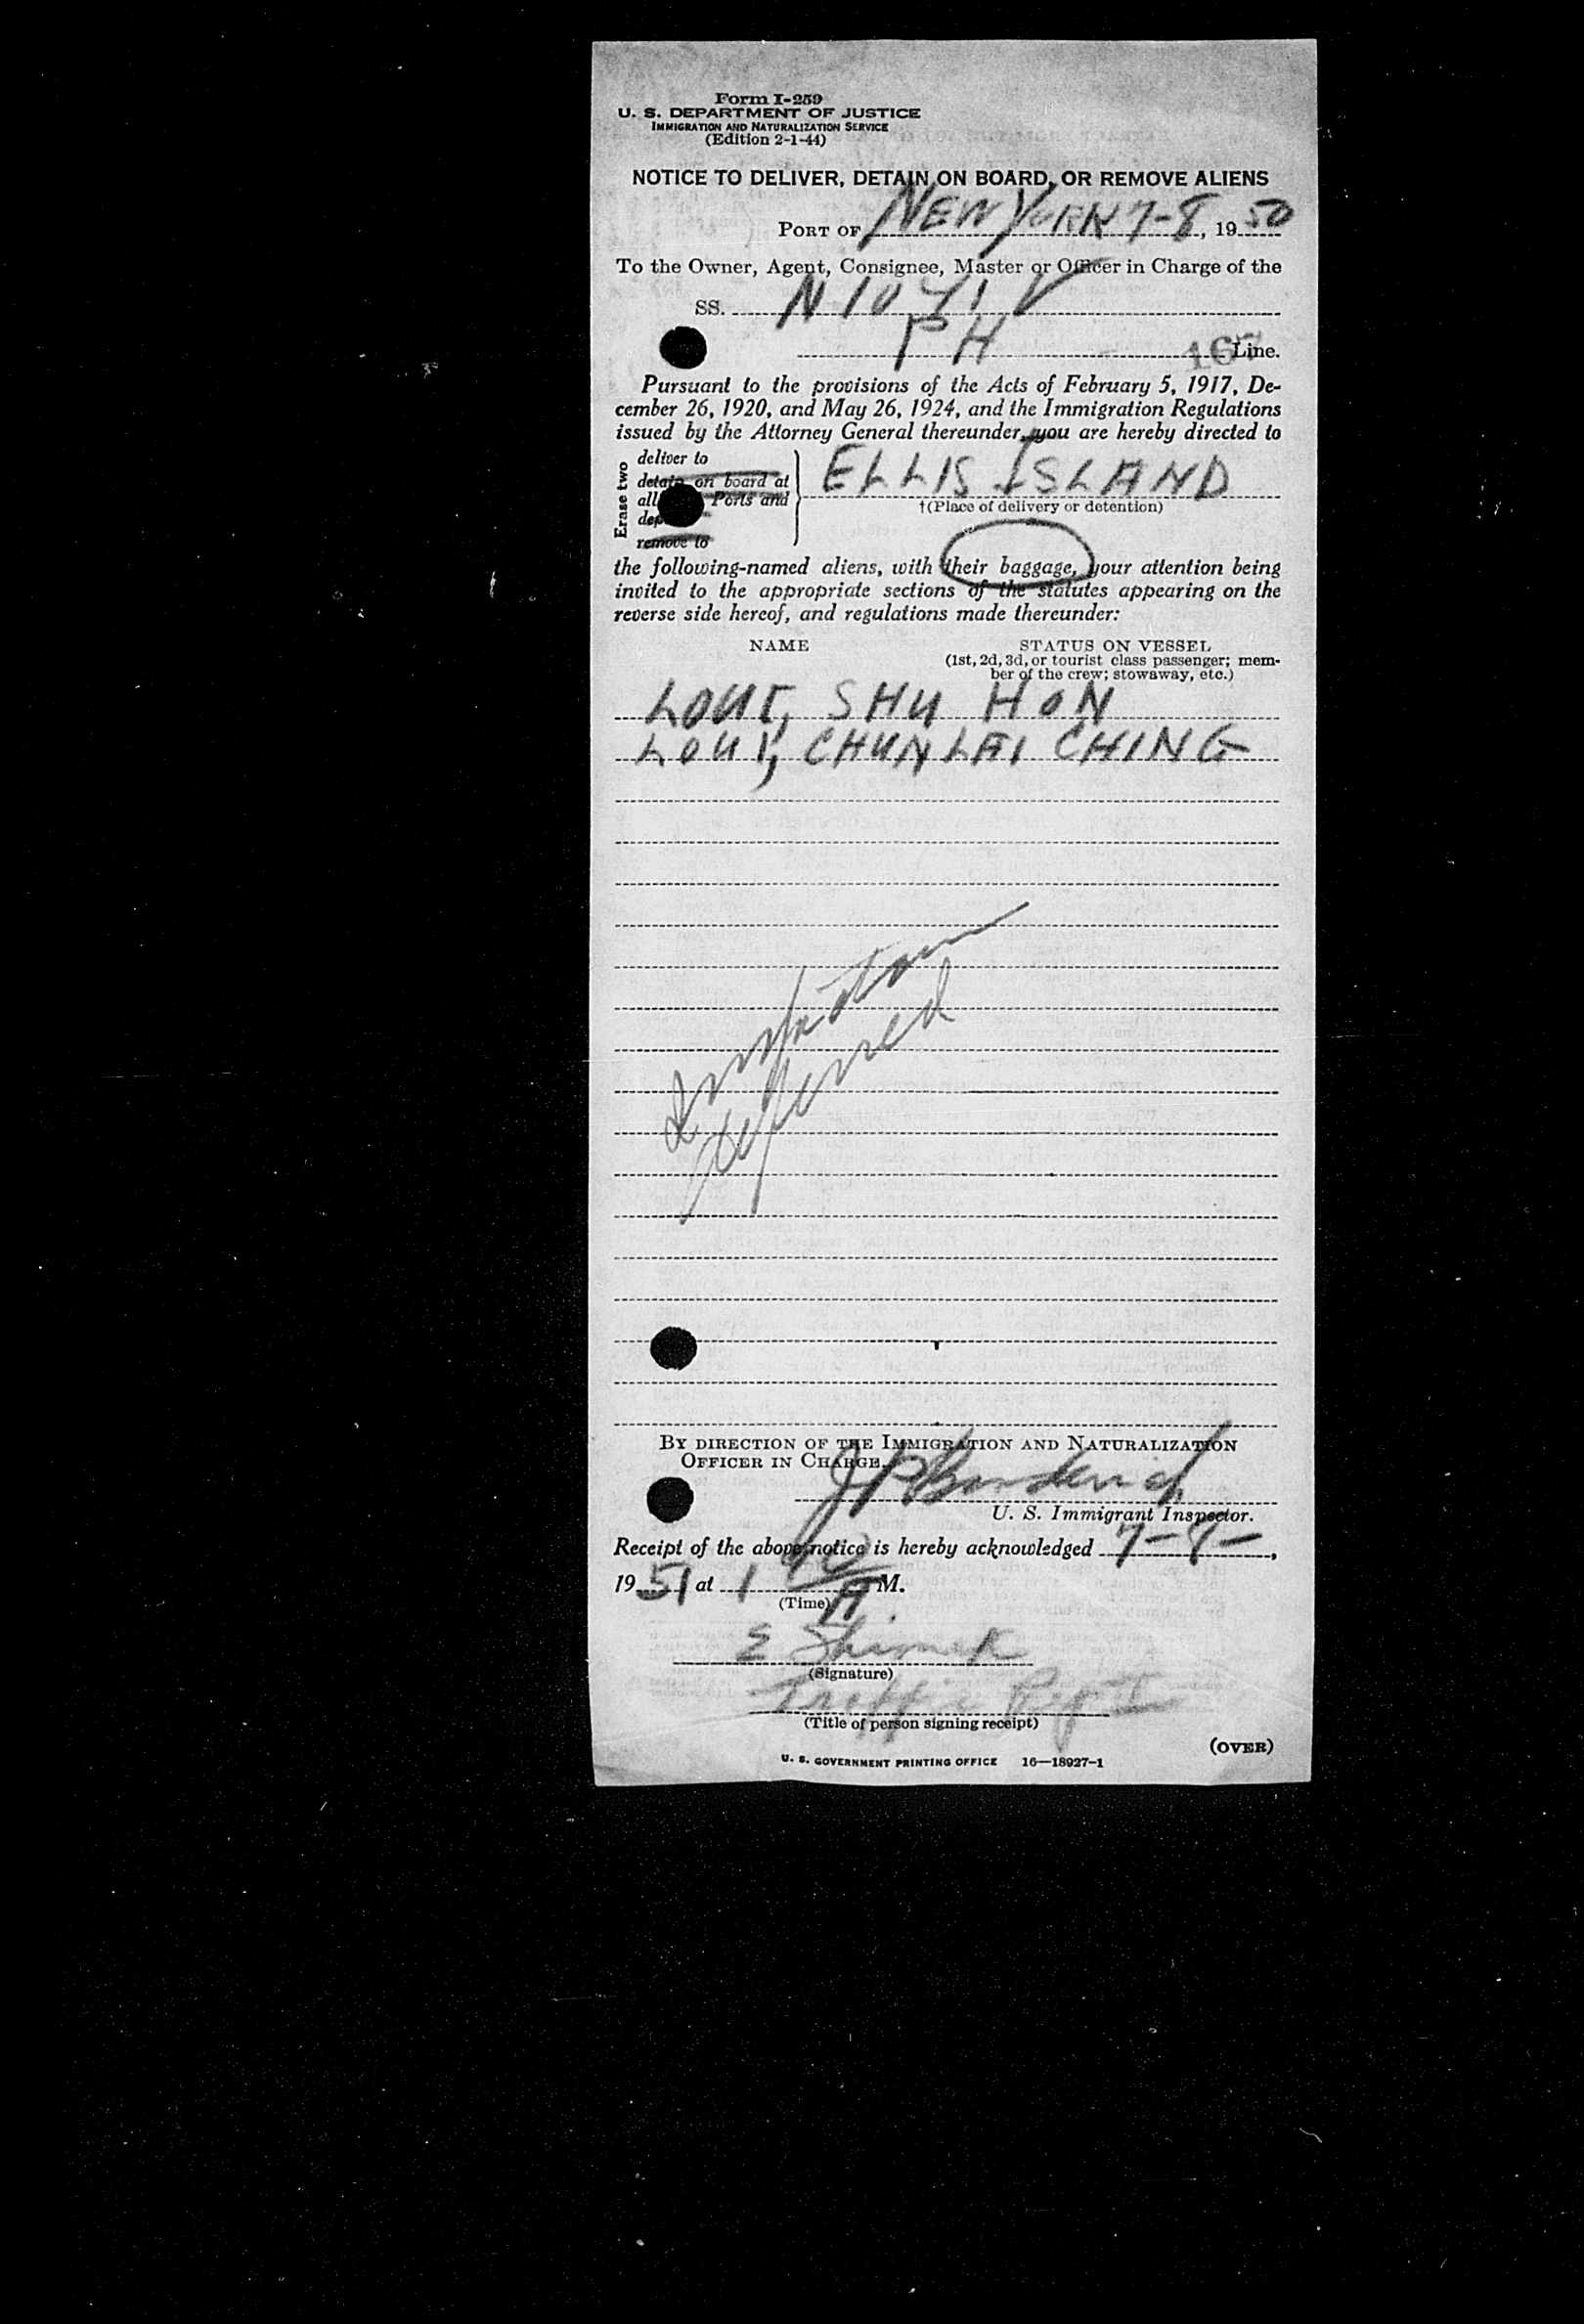 Form I-259
U. S. DEPARTMENT OF JUSTICE
IMMIGRATION AND NATURALIZATION SERVICE
(Edition 2-1-44)
NOTICE TO DELIVER, DETAIN ON BOARD, OR REMOVE ALIENS
PORT OF NEW YORK 7-8, 1950
To the Owner, Agent, Consignee, Master or Officer in Charge of the
SS. N1041V
PH Line.
Pursuant to the provisions of the Acts of February 5, 1917, De-
cember 26, 1920, and May 26, 1924, and the Immigration Regulations
issued by the Attorney General thereunder, you are hereby directed to
Erase two
deliver to
detain on board at
all Ports and
remove to
ELLIS ISLAND
†(Place of delivery or detention)
the following-named aliens, with their baggage, your attention being
invited to the appropriate sections of the statutes appearing on the
reverse side hereof, and regulations made thereunder:
NAME STATUS ON VESSEL
(1st, 2d, 3d, or tourist class passenger; mem-
ber of the crew; stowaway, etc.)
LOUI, SHU HON
LOUI, CHUN LAI CHING
Inspection
deferred
BY DIRECTION OF THE IMMIGRATION AND NATURALIZATION
OFFICER IN CHARGE.
U. S. Immigrant Inspector.
Receipt of the above notice is hereby acknowledged 7-7-,
1951 at 1 A M.
(Time)
E Shimek
(Signature)
Traffic Rept
(Title of person signing receipt)
(OVER)
U. S. GOVERNMENT PRINTING OFFICE 16—18927-1